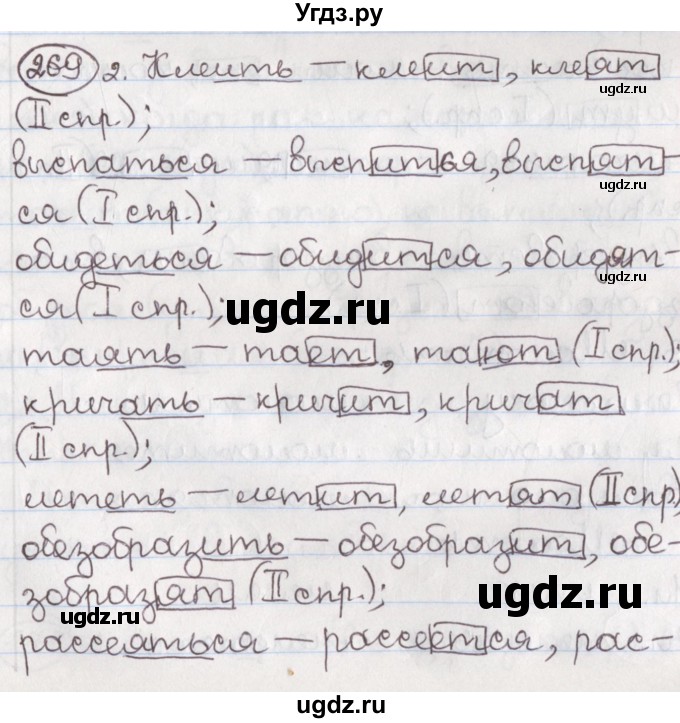 Угдз.ру
269 2. Клеить – клеит, клеят
ugdz.ru
(II спр.);
выспаться – выспится, выспят-
ugdz.ru
ся (I спр.);
обидеться – обидится, обидят-
ся (I спр.);
ugdz.ru
таять – тает, тают (I спр.);
кричать – кричит, кричат
(II спр.);
лететь – летит, летят (II спр)
обезобразить – обезобразит, обе-
зобразят (II спр.);
ugdz.ru
ugdz.ru
рассеяться – рассеется, рас-
ugdz.ru